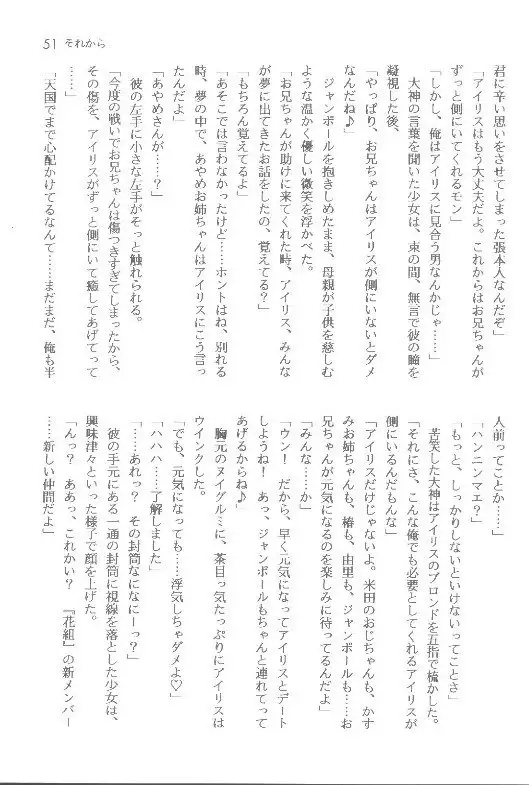 51 それから
君に辛い思いをさせてしまった張本人なんだぞ」
「アイリスはもう大丈夫だよ。これからはお兄ちゃんが
ずっと側にいてくれるモン」
「しかし、俺はアイリスに見合う男なんかじゃ……」
大神の言葉を聞いた少女は、束の間、無言で彼の瞳を
凝視した後、
「やっぱり、お兄ちゃんはアイリスが側にいないとダメ
なんだね♪」
ジャンポールを抱きしめたまま、母親が子供を慈しむ
ような温かく優しい微笑を浮かべた。
「お兄ちゃんが助けに来てくれた時、アイリス、みんな
が夢に出てきたお話をしたの、覚えてる？」
「もちろん覚えてるよ」
「あそこでは言わなかったけど……ホントはね、別れる
時、夢の中で、あやめお姉ちゃんはアイリスにこう言っ
たんだよ」
「あやめさんが……？」
彼の左手に小さな左手がそっと触れられる。
「今度の戦いでお兄ちゃんは傷つきすぎてしまったから、
その傷を、アイリスがずっと側にいて癒してあげてって
……」
「天国でまで心配かけてるなんて……まだまだ、俺も半
人前ってことか……」
「ハンニンマエ？」
「もっと、しっかりしないといけないってことさ」
苦笑した大神はアイリスのブロンドを五指で梳かした。
「それにさ、こんな俺でも必要としてくれるアイリスが
側にいるんだもんな」
「アイリスだけじゃないよ。米田のおじちゃんも、かす
みお姉ちゃんも、椿も、由里も、ジャンポールも……お
兄ちゃんが元気になるのを楽しみに待ってるんだよ」
「みんな……か」
「ウン！　だから、早く元気になってアイリスとデート
しようね！　あっ、ジャンポールもちゃんと連れてって
あげるからね♪」
胸元のヌイグルミに、茶目っ気たっぷりにアイリスは
ウインクした。
「でも、元気になっても……浮気しちゃダメよ♡」
「ハハハ……了解しました」
「……あれっ？　その封筒なになにーっ？」
彼の手元にある一通の封筒に視線を落とした少女は、
興味津々といった様子で顔を上げた。
「んっ？　ああっ、これかい？　『花組』の新メンバー
……新しい仲間だよ」